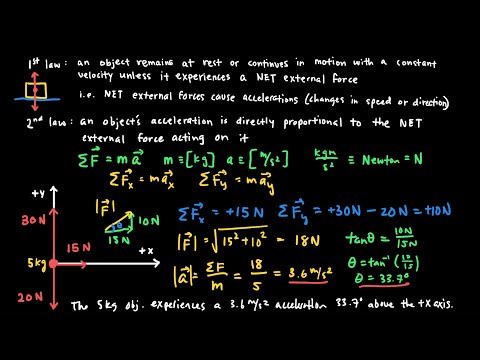 1st law: an object remains at rest or continues in motion with a constant
velocity unless it experiences a NET external force
i.e. NET external forces cause accelerations (changes in speed or direction)
2nd law: an object's acceleration is directly proportional to the NET
external force acting on it
ΣF⃗ = ma⃗ m ≡ [kg] a ≡ [m/s²] kgm/s² ≡ Newton = N
ΣF⃗x = ma⃗x ΣF⃗y = ma⃗y
+y
30N
15N
+x
5kg
20N
|F⃗|
10N
θ
15N
ΣF⃗x = +15N ΣF⃗y = +30N − 20N = +10N
|F⃗| = √(15² + 10²) = 18N
tanθ = 10N/15N
|a⃗| = ΣF/m = 18/5 = 3.6 m/s²
θ = tan⁻¹(10/15)
θ = 33.7°
The 5kg obj. experiences a 3.6 m/s² acceleration 33.7° above the +x axis.